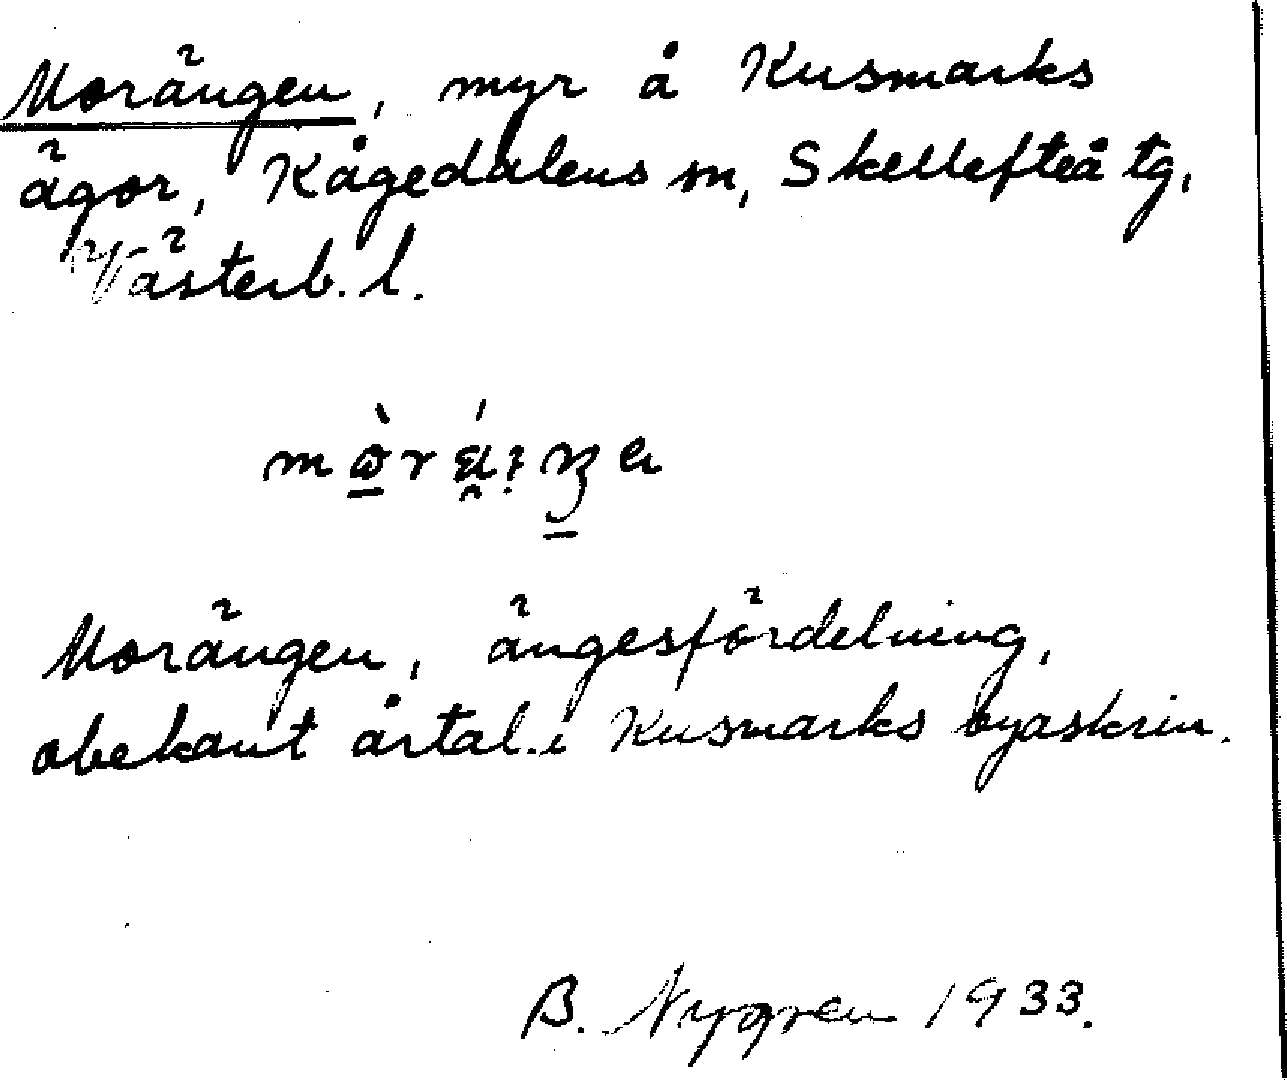 Morängen, myr å Kusmarks
ägor, Kågedalens sn, Skellefteå tg,
Västerb. l.
Morängen, ängesfördelning,
obekant årtal. i Kusmarks byaskrin.
B. Nygren 1933.